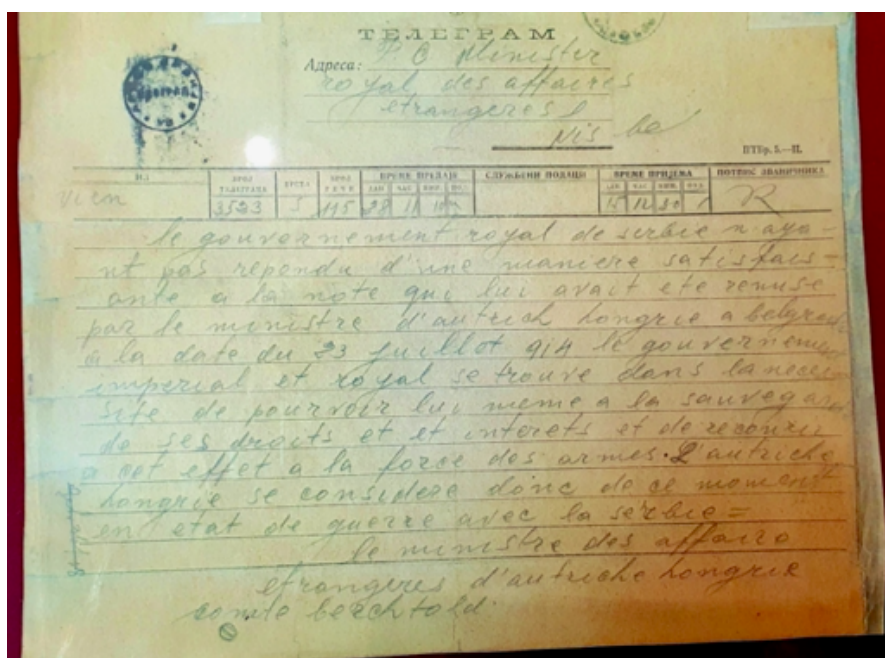 ТЕЛЕГРАМ
Адреса: P. C Minister
royal des affaires
etrangeres
Nis
ПТБр. 5.—II.
ИЗ БРОЈ ТЕЛЕГРАМА ВРСТА БРОЈ РЕЧИ ВРЕМЕ ПРЕДАЈЕ СЛУЖБЕНИ ПОДАЦИ ВРЕМЕ ПРИЈЕМА ПОТПИС ЗВАНИЧНИКА
ДАН ЧАС МИН. ДАН ЧАС МИН.
Vien 3523 5 115 28 11 12 R
le gouvernement royal de serbie n aya-
nt pas repondu d'une maniere satisfais-
ante a la note qui lui avait ete remise
par le ministre d'autrich hongrie a belgrade
a la date du 23 juillot 914 le gouvernement
imperial et royal se trouve dans la neces
site de pourvoir lui meme a la sauvegarde
de ses droits et et interets et de recourir
a cet effet a la force des armes. L'autriche
hongrie se considere donc de ce moment
en etat de guerre avec la serbie =
le ministre des affaire
etrangeres d'autriche hongrie
comte berchtold.